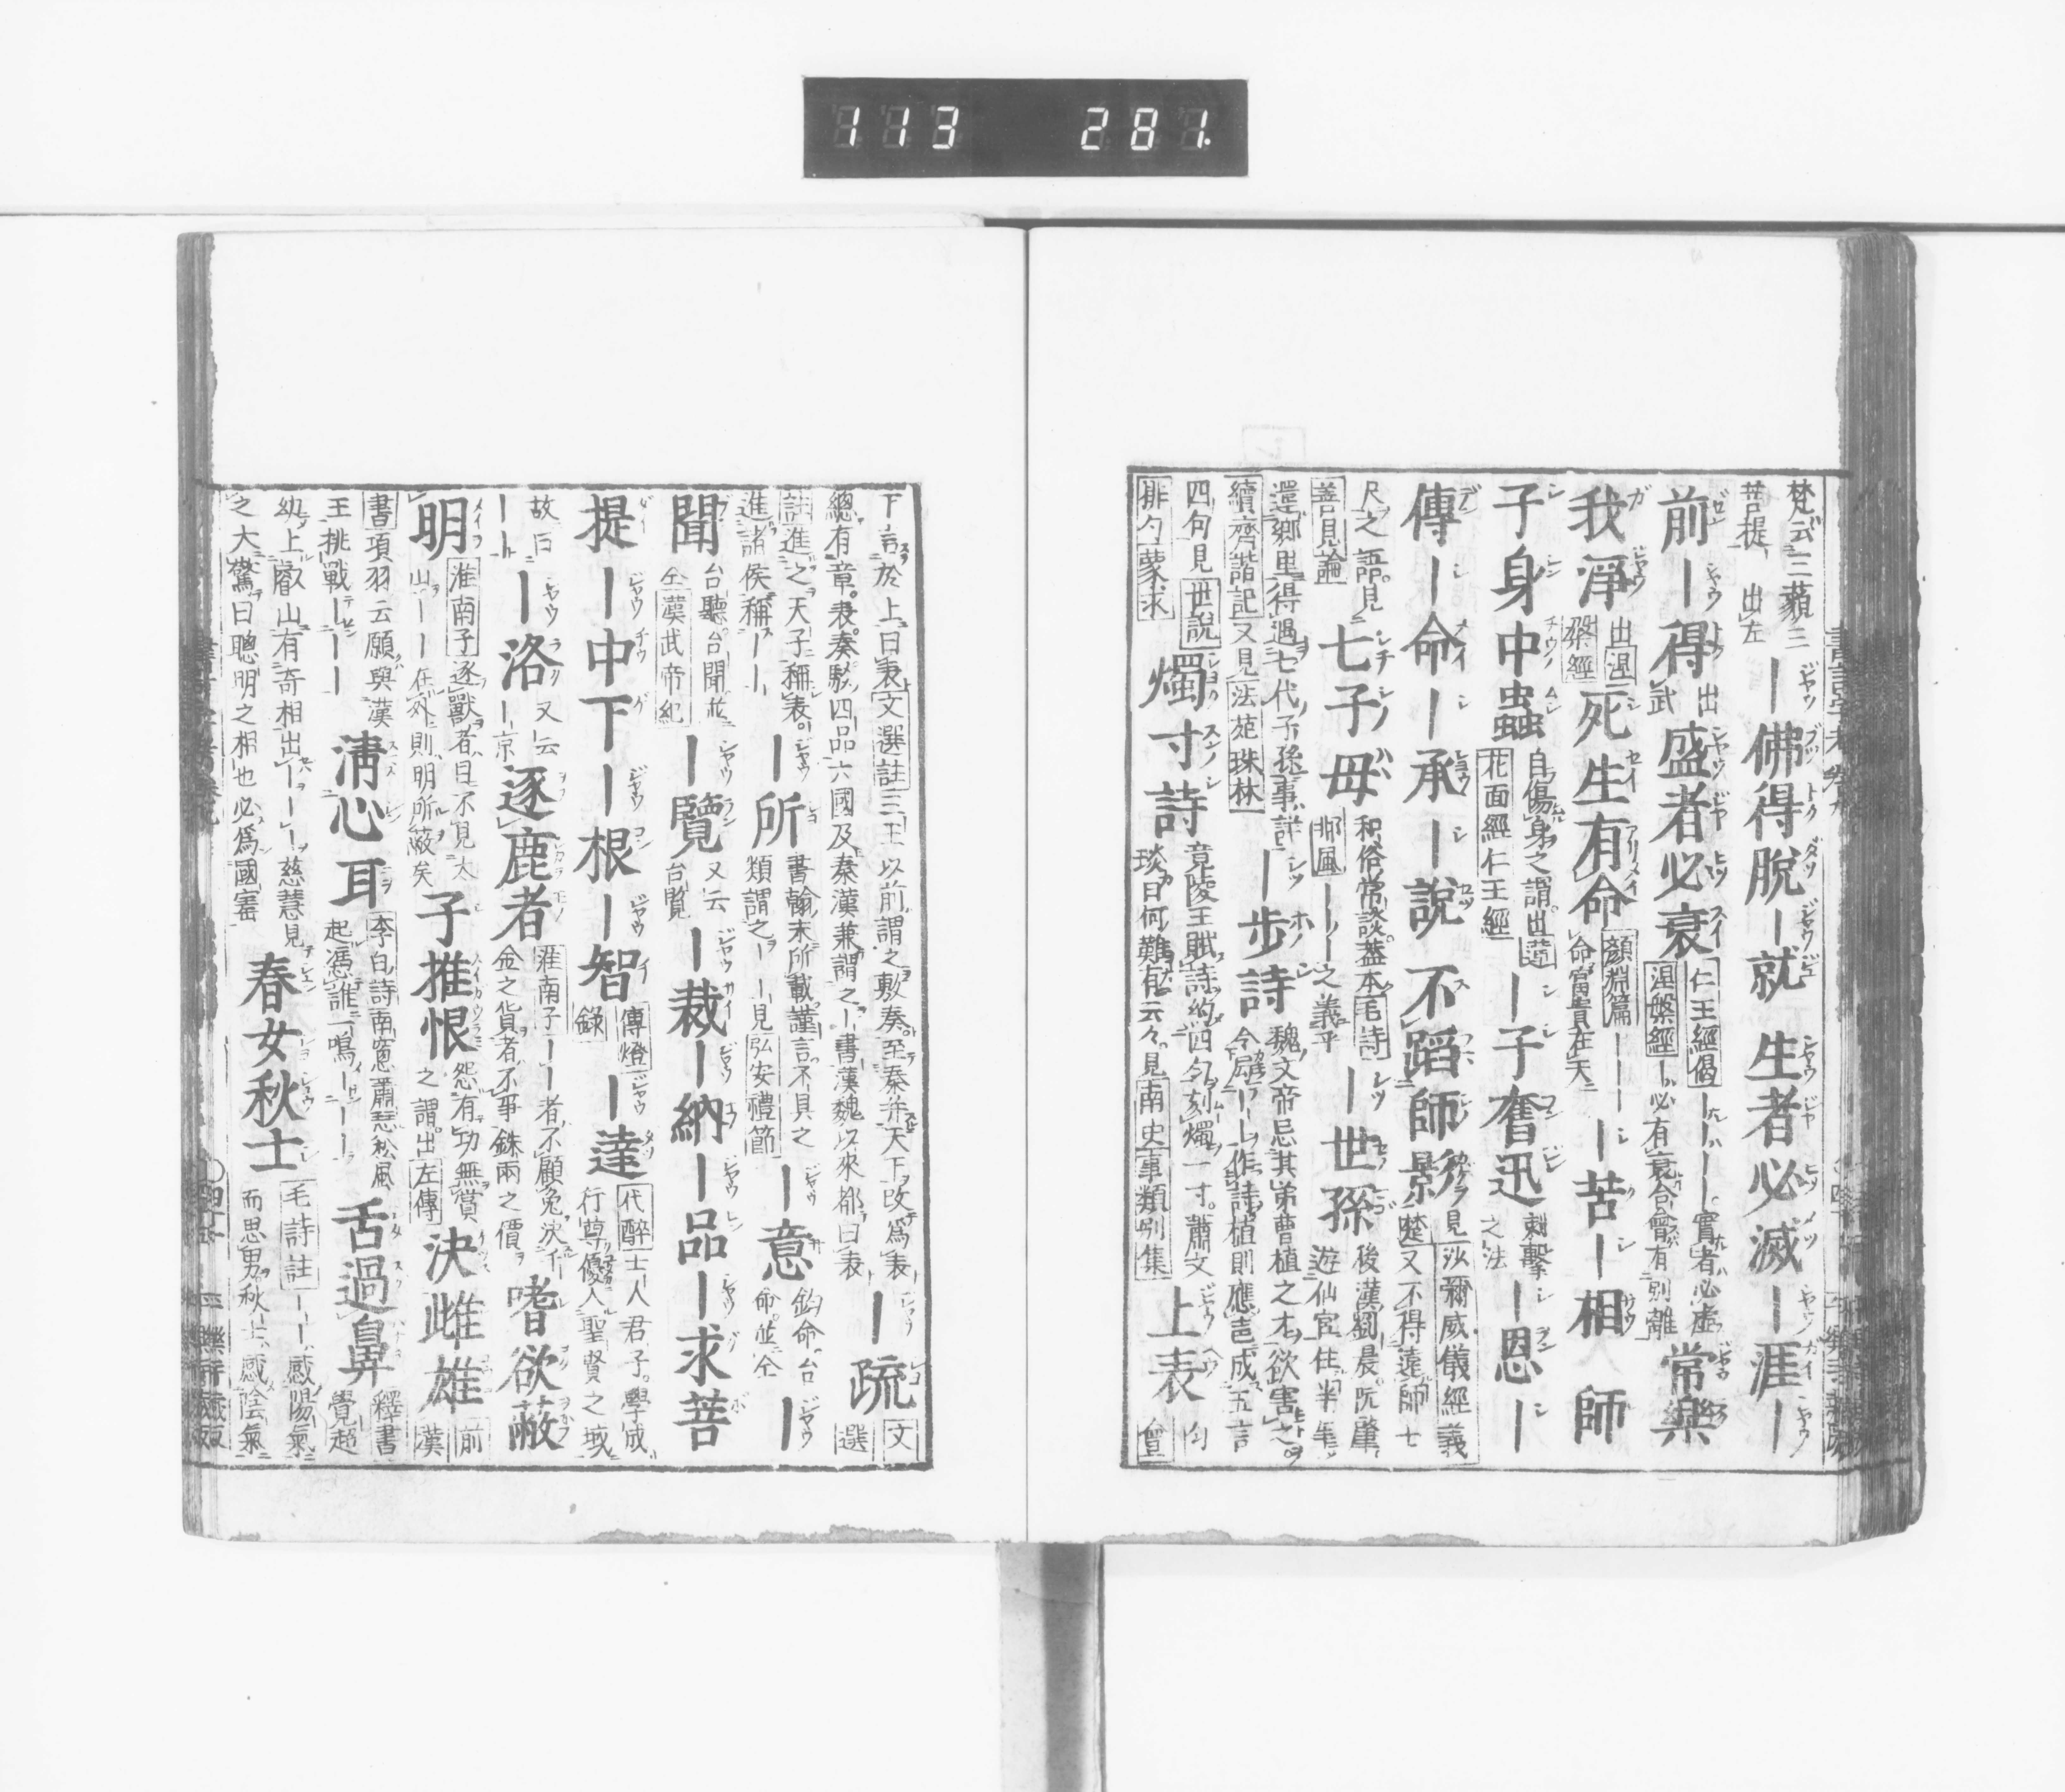 113 281.
梵云三藐三菩提 出左 ｜佛得脱｜就 生者必滅｜涯｜
前｜得 出武 盛者必衰 仁王經偈｜｜｜｜。實者必虛 涅槃經｜必有衰合會有別離 常樂
我淨 出涅槃經 死生有命 顏淵篇｜｜｜｜命富貴在天 ｜苦｜相 師
子身中蟲 自傷身之謂出蓮花面經仁王經 ｜子奮迅 刺擊之法 ｜恩｜
傳｜命｜承｜説 不蹈師影 見沙彌威儀經義楚又不得遠師七
尺之語見善見論 七子母 和俗常談蓋本毛詩邶風｜｜｜之義乎 ｜世孫 後漢劉晨阮肇遊仙宮住半年
還鄉里得遇七代子孫事詳續齊諧記又見法苑珠林 ｜步詩 魏文帝忌其弟曹植之才欲害之 令屆｜｜作詩植則應言成五言
四句見世說 燭寸詩 竟陵王賦詩約四句刻燭一寸。蕭文琰曰何難有云々見南史事類別集
俳勺蒙求 上表 會勻
下言於上曰表文選註三王以前謂之敷奏至秦并天下改爲表
總有章表奏駁四品六國及秦漢兼謂之｜書漢魏以來都曰表 ｜疏 文選
註進之天子稱表。進諸侯稱｜｜ ｜所 書翰末所載謹言不具之類謂之｜｜見弘安禮節 ｜意 鈞命台命並仝 ｜
聞 台聽台聞並仝漢武帝紀 ｜覽 又云台覽 ｜裁｜納｜品｜求菩
提｜中下｜根｜智 傳燈錄 ｜達 代醉士人君子。學成行尊優入聖賢之域
故曰｜｜ ｜洛 又云｜京 逐鹿者 淮南子｜｜者不顧兔決千金之貨者不事銖兩之價 嗜欲蔽
明 淮南子逐獸者目不見大山｜｜在外則明所蔽矣 子推恨 怨有功無賞之謂出左傳 決雌雄 前漢
書項羽云願與漢王挑戰｜｜｜ 淸心耳 李白詩南窓蕭瑟松風起憑誰一鳴｜｜｜ 舌過鼻 釋書覺超
幼上叡山有奇相出｜｜｜慈慧見之大驚曰聰明之相也必爲國寶 春女秋士 毛詩註｜｜感陽氣而思男。秋士感陰氣